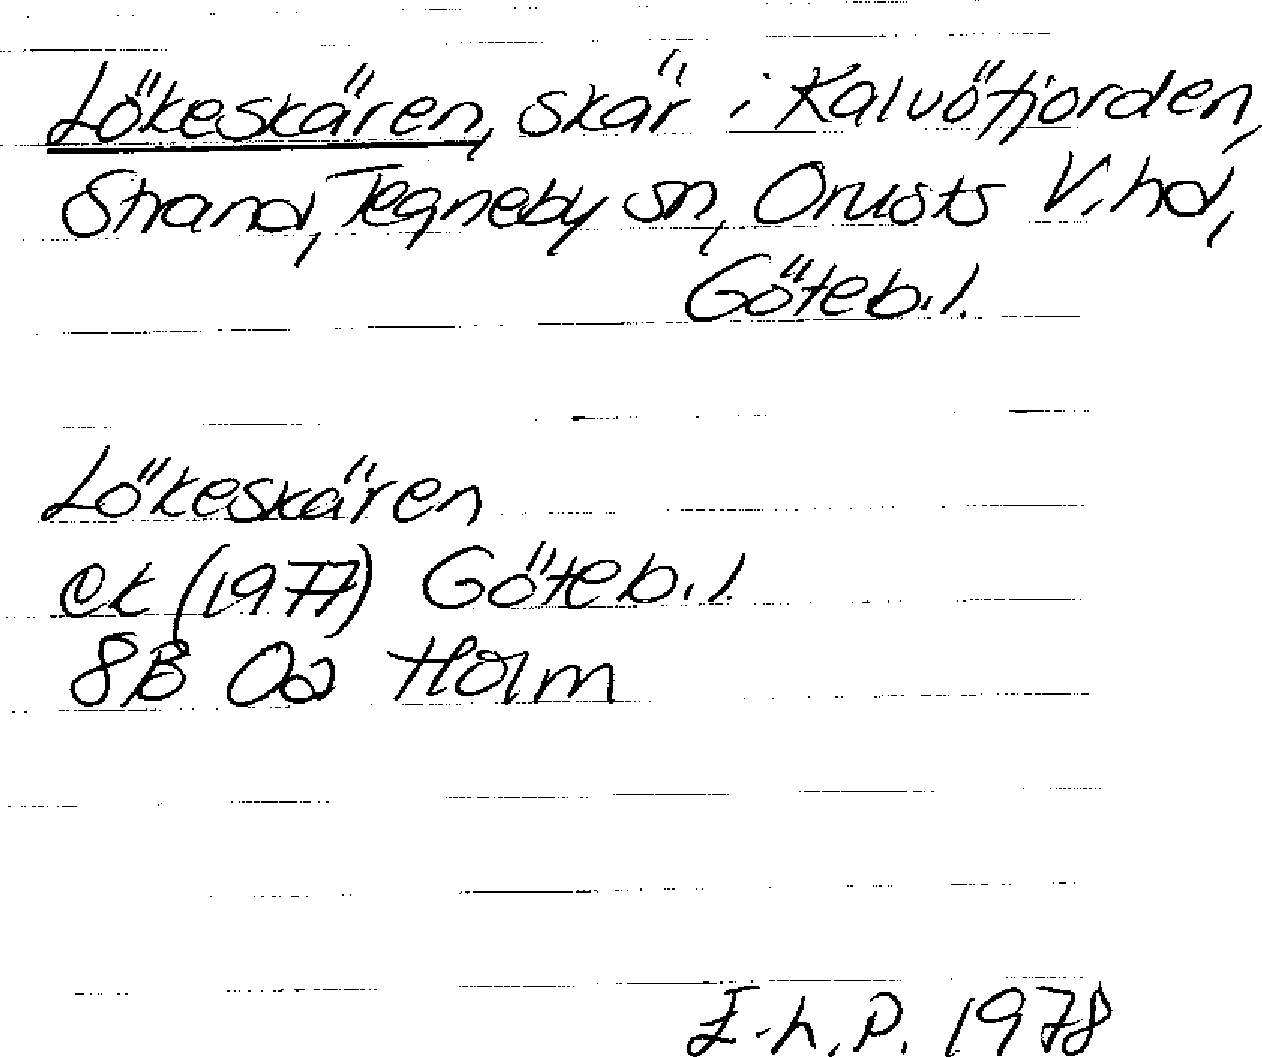 Lökeskären, skär i Kalvöfjorden,
Strand, Tegneby sn, Orusts V. hd,
Göteb. l.
Lökeskären
ek (1977) Göteb. l.
8B 0a Holm
E-L. P. 1978